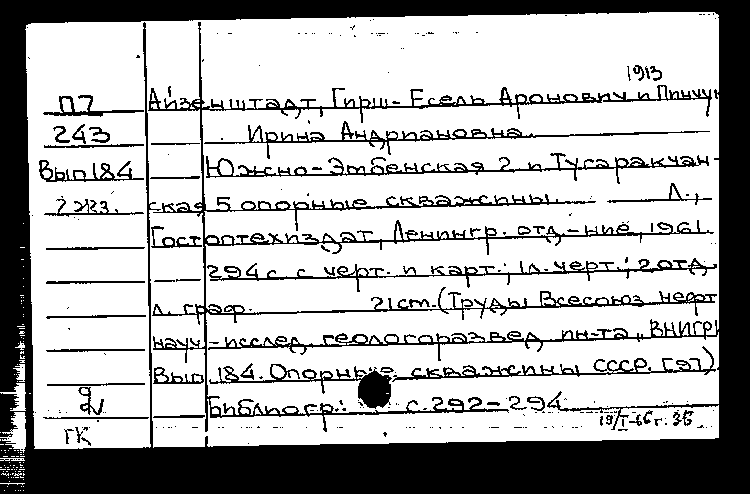 1913
П7 Айзенштадт, Гирш-Есель Аронович и Пинчук
243 Ирина Андриановна.
Вып 184 Южно-Эмбенская 2 и Тугаракчан-
2 экз. ская 5 опорные скважины. Л.,
Гостоптехиздат, Ленингр. отд-ние, 1961.
294 с с черт. и карт.; 1л. черт.; 2 отд.
л. граф. 21 cm. (Труды Всесоюз нефт
науч-исслед. геологоразвед ин-та, ВНИГРИ
Вып. 184. Опорные скважины СССР. [9?])
Библиогр.: с. 292-294
ГК 19/I-66 г. 36